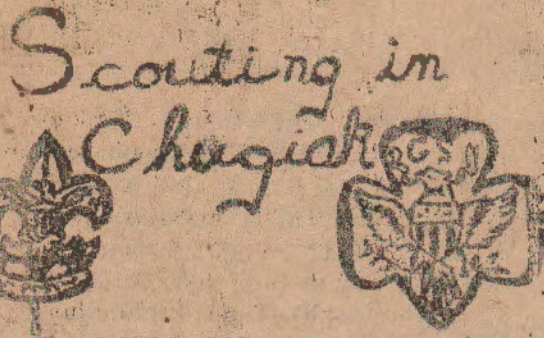 Scouting in
Chugiak
GS